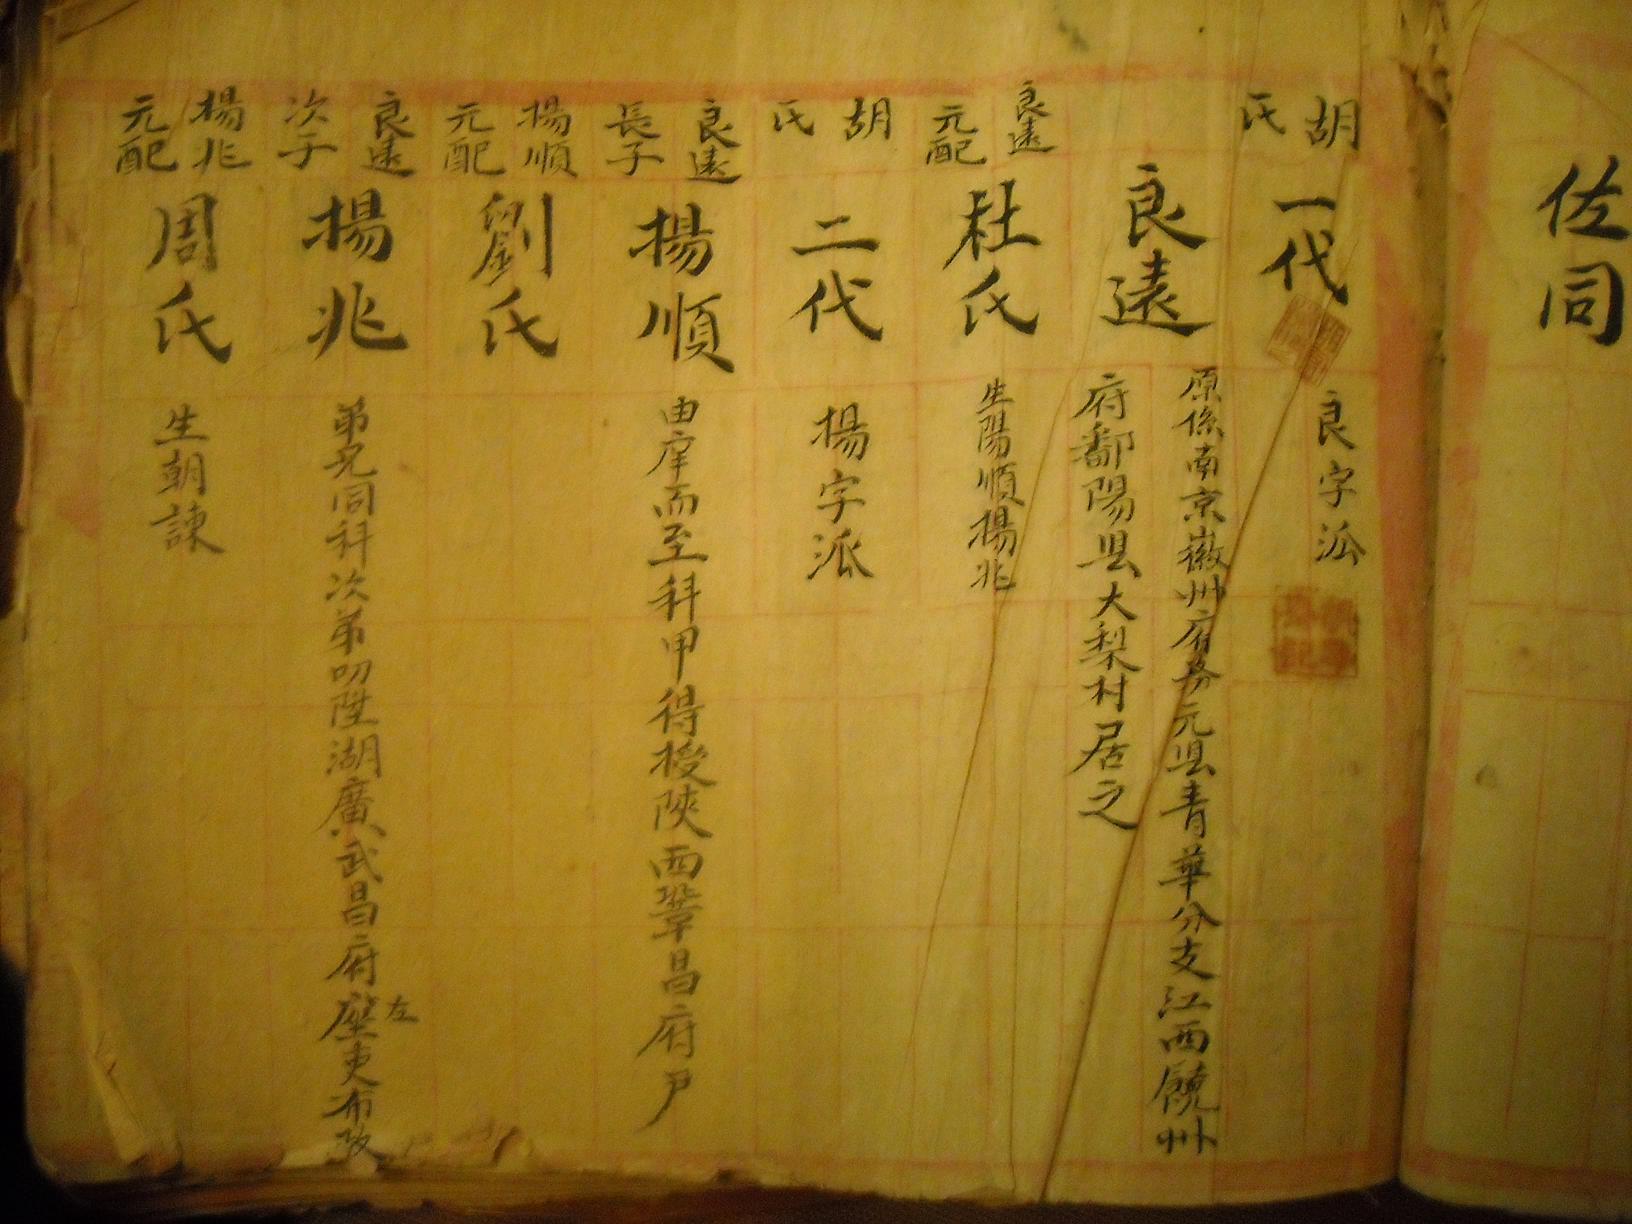 佐同
胡氏
一代
良字派
良遠
原係南京徽州府務元县青華分支江西饒州
府鄱陽县大梨村居之
良遠元配
杜氏
生陽順揚兆
胡氏
二代
揚字派
良遠長子
揚順
由庠而至科甲得授陝西鞏昌府尹
揚順元配
劉氏
良遠次子
揚兆
弟兄同科次弟叨陞湖廣武昌府
左
吏布政
揚兆元配
周氏
生朝諫